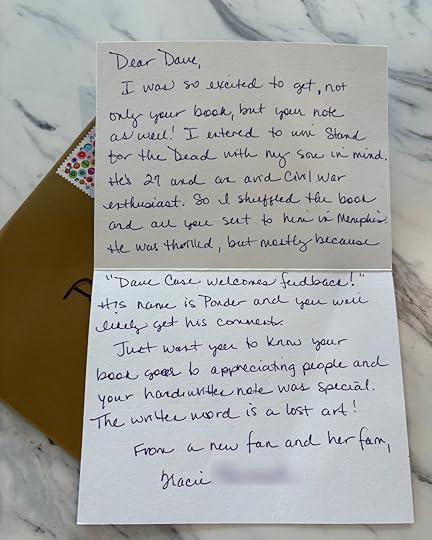 Dear Dave,
I was so excited to get, not
only your book, but your note
as well! I entered to win Stand
for the Dead with my son in mind.
He's 27 and an avid Civil War
enthusiast. So I shuffled the book
and all you sent to him in Memphis.
He was thrilled, but mostly because
"Dave Case welcomes feedback!"
His name is Ponder and you will
likely get his comments.
Just want you to know your
book goes to appreciating people and
your handwritten note was special.
The written word is a lost art!
From a new fan and her fam,